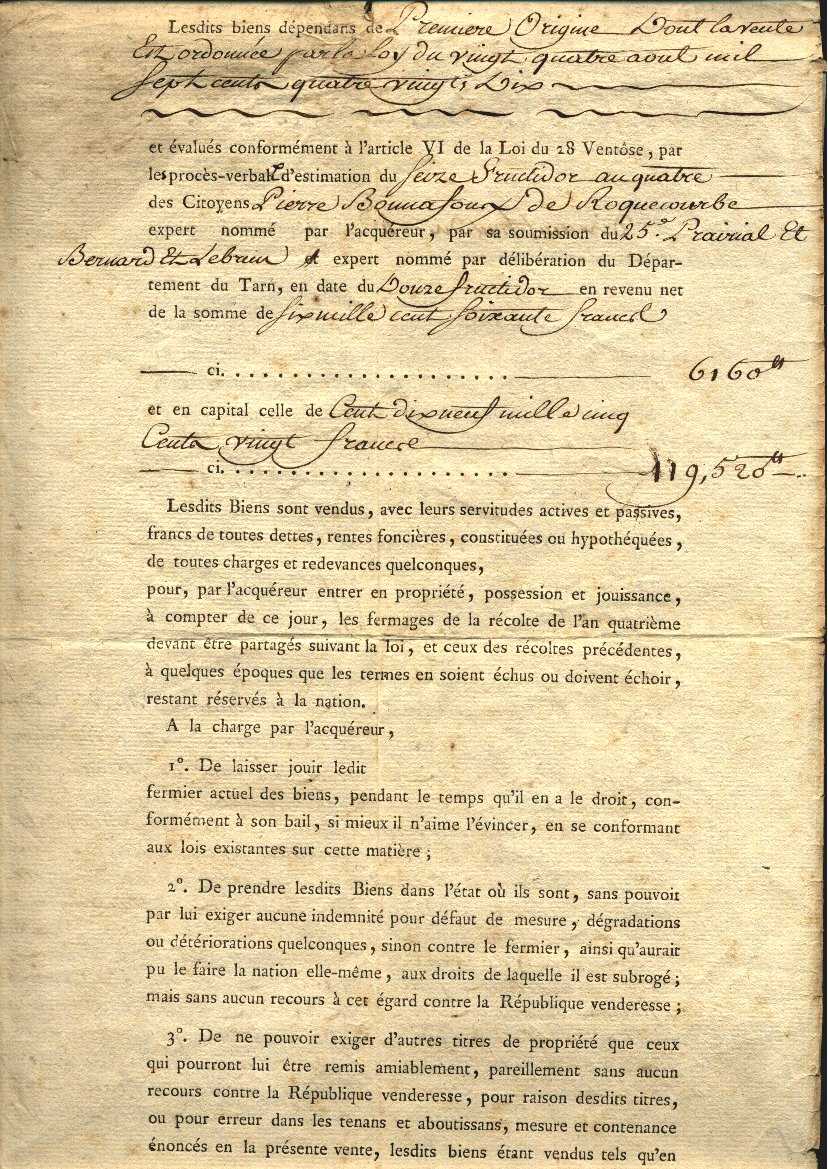 Lesdits biens dépendans de Premiere Origine Dont la vente
Est ordonnée par la loy du vingt quatre aout mil
Sept cents quatre vingts Dix
et évalués conformément à l'article VI de la Loi du 28 Ventôse, par
les procès-verbal d'estimation du Seize fructidor an quatre
des Citoyens Pierre Bonnafoux de Roquecourbe
expert nommé par l'acquéreur, par sa soumission du 25e. Prairial Et
Bernard Et Lebrun expert nommé par délibération du Dépar-
tement du Tarn, en date du Douze fructidor en revenu net
de la somme de Six mille cent soixante francs
ci. . . . . . . . . . . . . . . . . . . . . 6160tt
et en capital celle de Cent dix neuf mille cinq
Cents vingt francs
ci. . . . . . . . . . . . . . . . . . . . . 119,520tt
Lesdits Biens sont vendus, avec leurs servitudes actives et passives,
francs de toutes dettes, rentes foncières, constituées ou hypothéquées,
de toutes charges et redevances quelconques,
pour, par l'acquéreur entrer en propriété, possession et jouissance,
à compter de ce jour, les fermages de la récolte de l'an quatrième
devant être partagés suivant la loi, et ceux des récoltes précédentes,
à quelques époques que les termes en soient échus ou doivent échoir,
restant réservés à la nation.
A la charge par l'acquéreur,
1°. De laisser jouir ledit
fermier actuel des biens, pendant le temps qu'il en a le droit, con-
formément à son bail, si mieux il n'aime l'évincer, en se conformant
aux lois existantes sur cette matière;
2°. De prendre lesdits Biens dans l'état où ils sont, sans pouvoir
par lui exiger aucune indemnité pour défaut de mesure, dégradations
ou détériorations quelconques, sinon contre le fermier, ainsi qu'aurait
pu le faire la nation elle-même, aux droits de laquelle il est subrogé;
mais sans aucun recours à cet égard contre la République venderesse;
3°. De ne pouvoir exiger d'autres titres de propriété que ceux
qui pourront lui être remis amiablement, pareillement sans aucun
recours contre la République venderesse, pour raison desdits titres,
ou pour erreur dans les tenans et aboutissans, mesure et contenance
énoncés en la présente vente, lesdits biens étant vendus tels qu'en